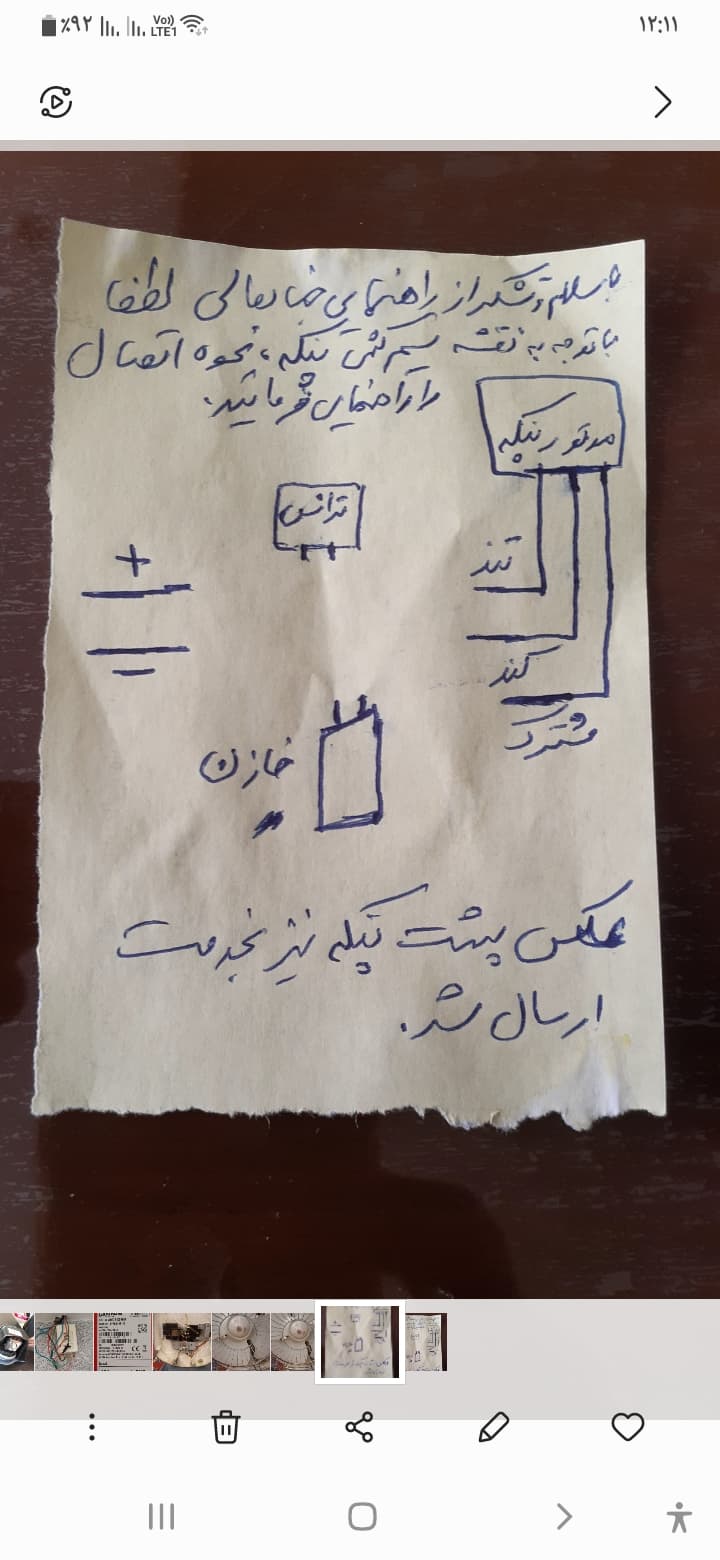 ٪۹۲ Vo)) LTE1 ۱۲:۱۱
با سلام و تشکر از راهنمایی جنابعالی لطفا
با توجه به نقشه سیم کشی پنکه، نحوه اتصال
را راهنمایی فرمائید.
موتور پنکه
ترانس
تند
+
کند
مشترک
خازن
عکس پشت پنکه نیز بخدمت
ارسال شد.